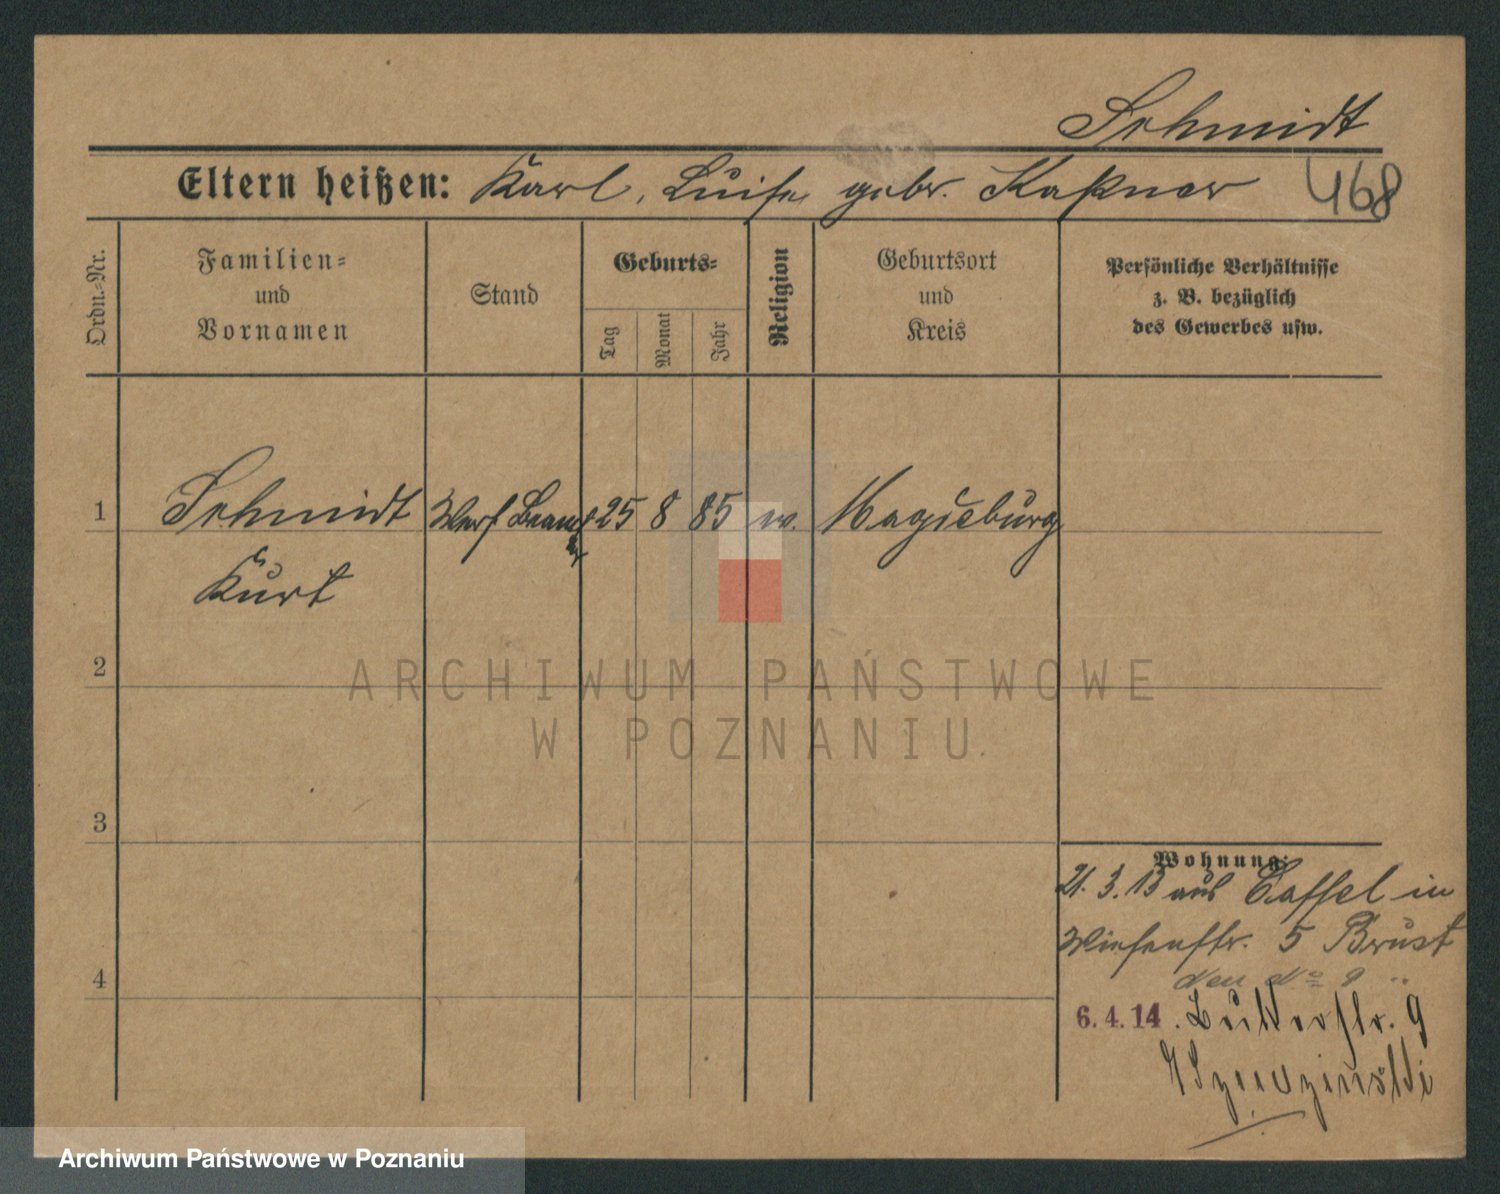 Schmidt
Eltern heißen: Karl, Luise gebr. Kaßner
468
Ordn.-Nr.
Familien-
und
Vornamen
Stand
Geburts-
Tag
Monat
Jahr
Religion
Geburtsort
und
Kreis
Persönliche Verhältnisse
z. B. bezüglich
des Gewerbes usw.
1
Schmidt
25
8
85
ev.
Magdeburg
Kurt
2
ARCHIWUM PAŃSTWOWE
W POZNANIU
3
Wohnung:
21. 3. 13 aus Cassel in
Wiesenstr. 5 Brust
4
6. 4. 14.
9
Archiwum Państwowe w Poznaniu